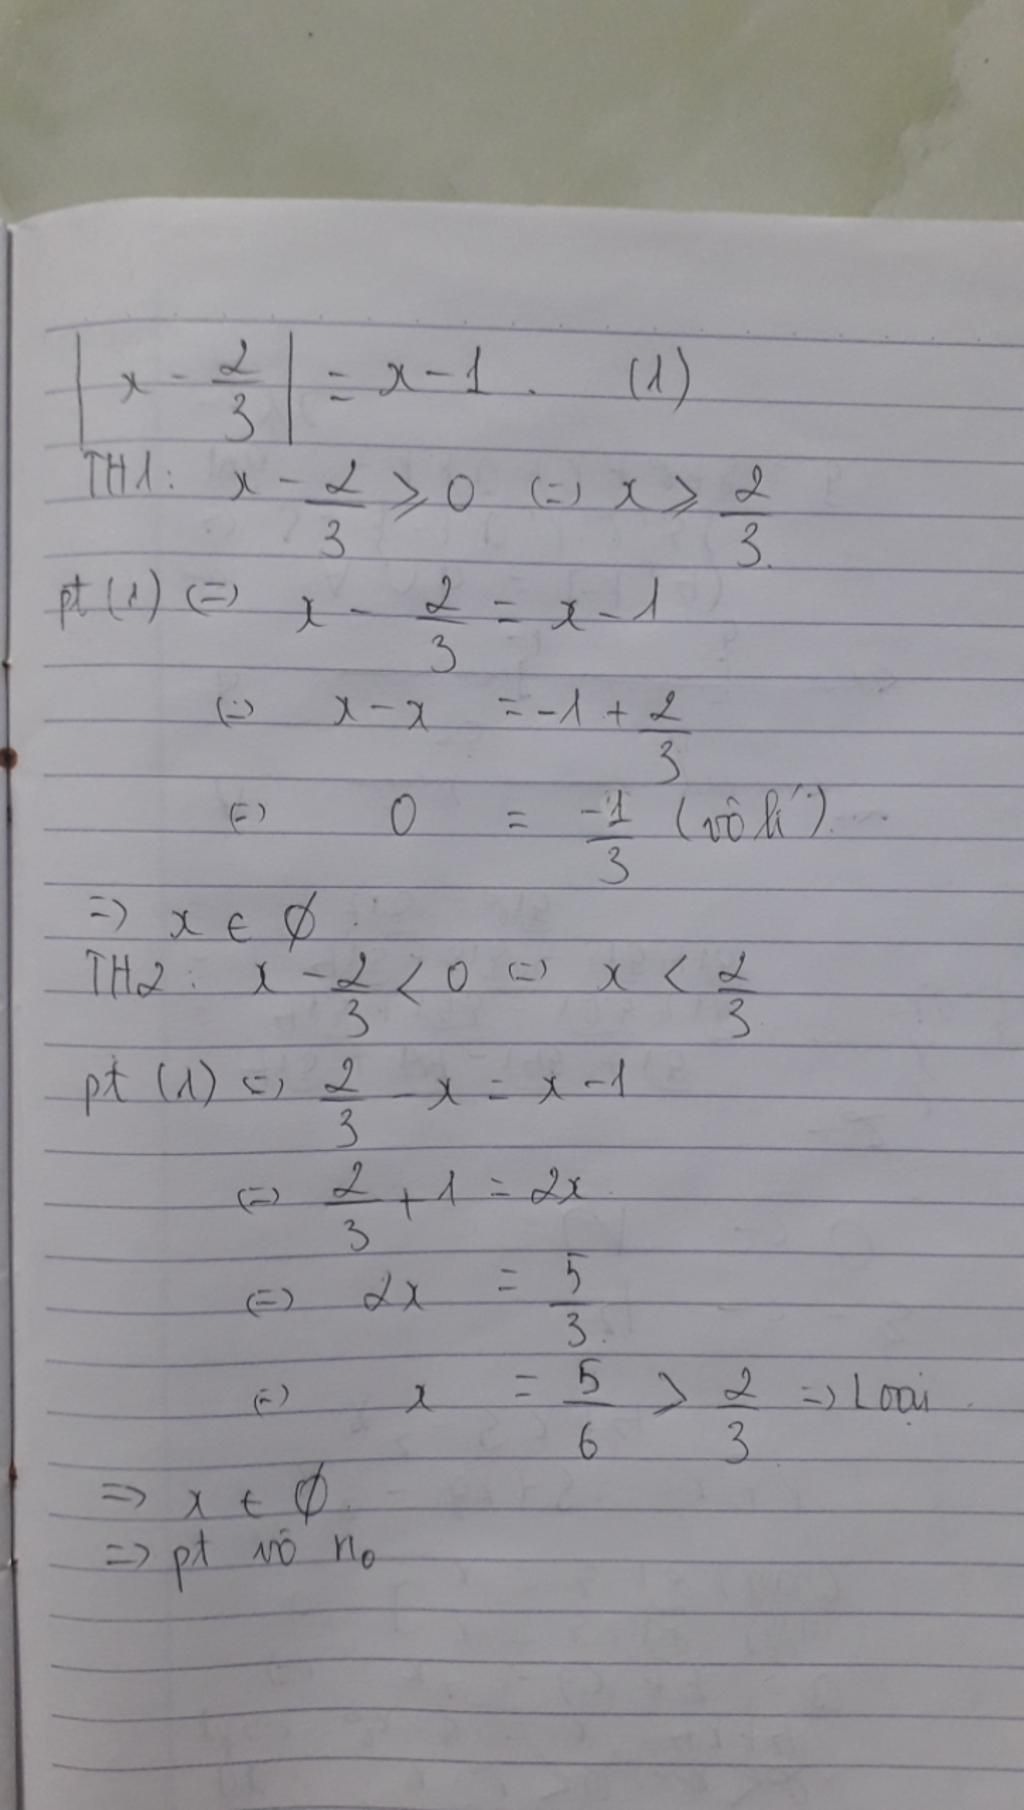 |x - 2/3| = x - 1. (1)
TH1: x - 2/3 ⩾ 0 (=) x ⩾ 2/3.
pt (1) (=) x - 2/3 = x - 1
(=) x - x = -1 + 2/3
(=) 0 = -1/3 (vô lí).
=) x ∈ ∅.
TH2: x - 2/3 < 0 (=) x < 2/3
pt (1) (=) 2/3 - x = x - 1
(=) 2/3 + 1 = 2x
(=) 2x = 5/3.
(=) x = 5/6 > 2/3 =) Loại.
=) x ∈ ∅.
=) pt vô n₀